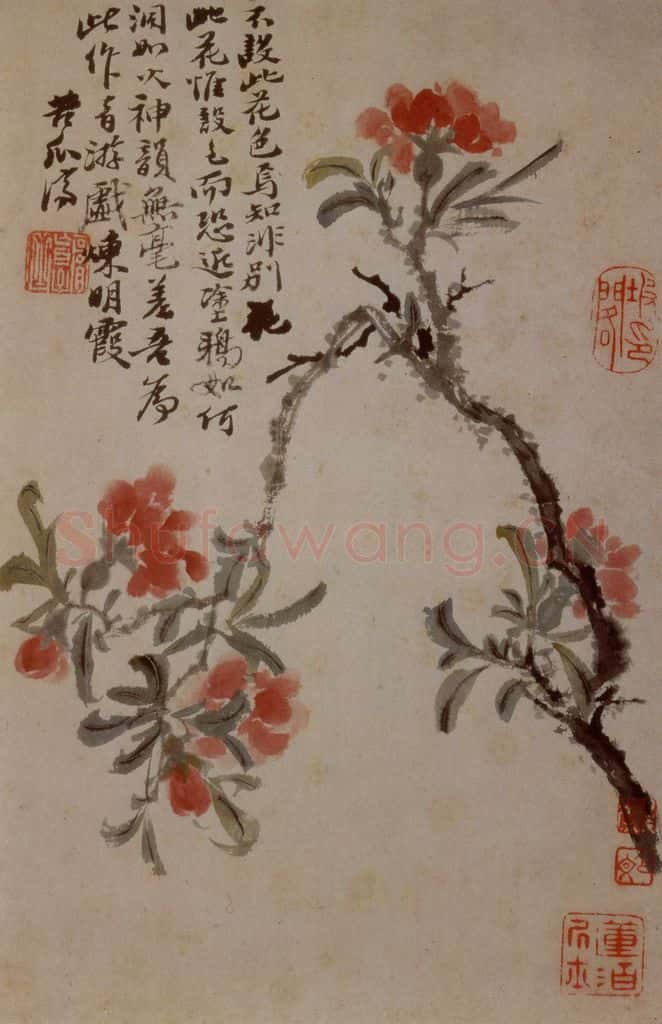 不設此花色焉知非別花
此花惟設色而恐近塗鴉如何
洞如火神韻無毫差吾為
此作者游戲煉明霞
苦瓜濟
Shufawang.cn